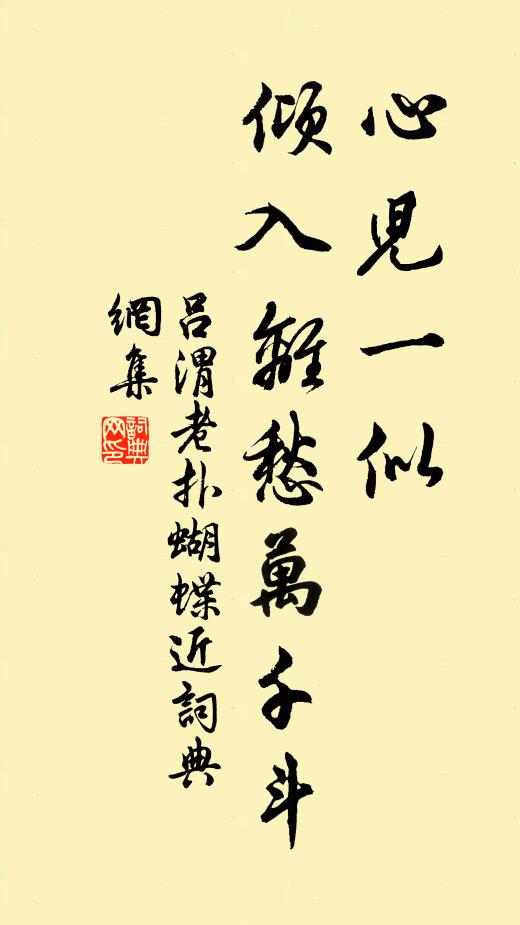 心兒一似
傾入離愁萬千斗
呂渭老扑蝴蝶近詞典
網集
詞典
网印